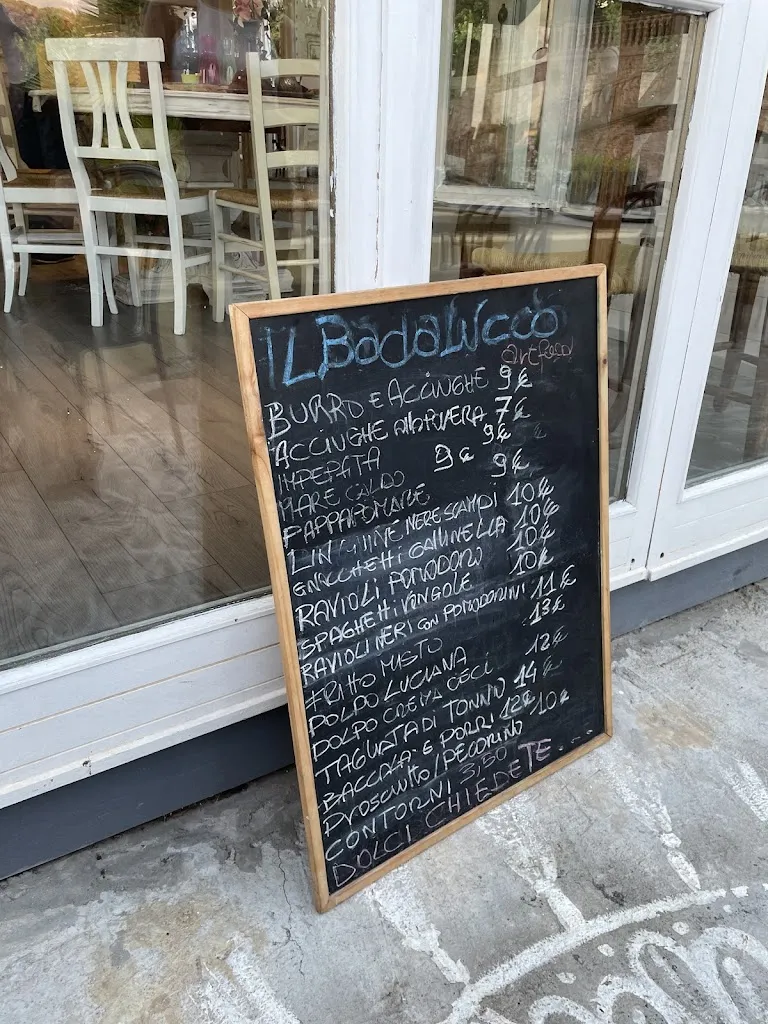 IL BadaLuccò
BURRO E ACCIUGHE 9€
ACCIUGHE ALLA POVERA 7€
IMPEPATA 9€
MARE CALDO 9€
PAPPAPOMARE 9€
LINGUINE NERE SCAMPI 10€
GNOCCHETTI GALLINELLA 10€
RAVIOLI POMODORO 10€
SPAGHETTI VONGOLE 10€
RAVIOLI NERI CON POMODORINI 11€
FRITTO MISTO 13€
POLPO LUCIANA
POLPO CREMA CECI 12€
TAGLIATA DI TONNO 14€
BACCALA' E PORRI 12€
PROSCIUTTO/PECORINO 10€
CONTORNI 3,50
DOLCI CHIEDETE...